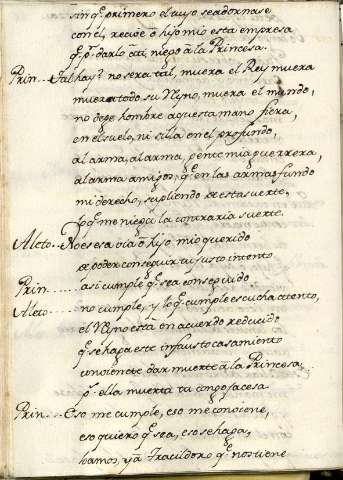 sin q̃ primero el tuyo se adornase
con el, recive ô hijo mio esta empresa
q̃ p.ʳ darlo â ti, niego â la Princesa.
Prin... Tal hay? no sera tal, muera el Rey muera
muera todo su Rẏno, muera el mundo,
no deje hombre aquesta mano fiera,
en el suelo, ni silla en el profundo,
al arma, al arma, gente mia guerrera,
al arma amigos, q̃ en las armas fundo
mi derecho, supliendo de esta suerte,
lo q̃ me niega la contraria suerte.
Aleto.. No es esa via ô hijo mio querido
de poder conseguir tu justo intento
Prin...... asi cumple q̃ sea conseguido
Aleto..... no cumple, y lo q̃ cumple escucha atento,
el Rẏno está en acuerdo reducido
q̃ se haga este infausto casamiento
conviene dar muerte â la Princesa,
p.ˢ ella muerta tu congoja cesa
Prin... Eso me cumple, eso me conviene,
eso quiero q̃ sea, eso se haga,
vamos, ya Tracildoro q̃ nos tiene